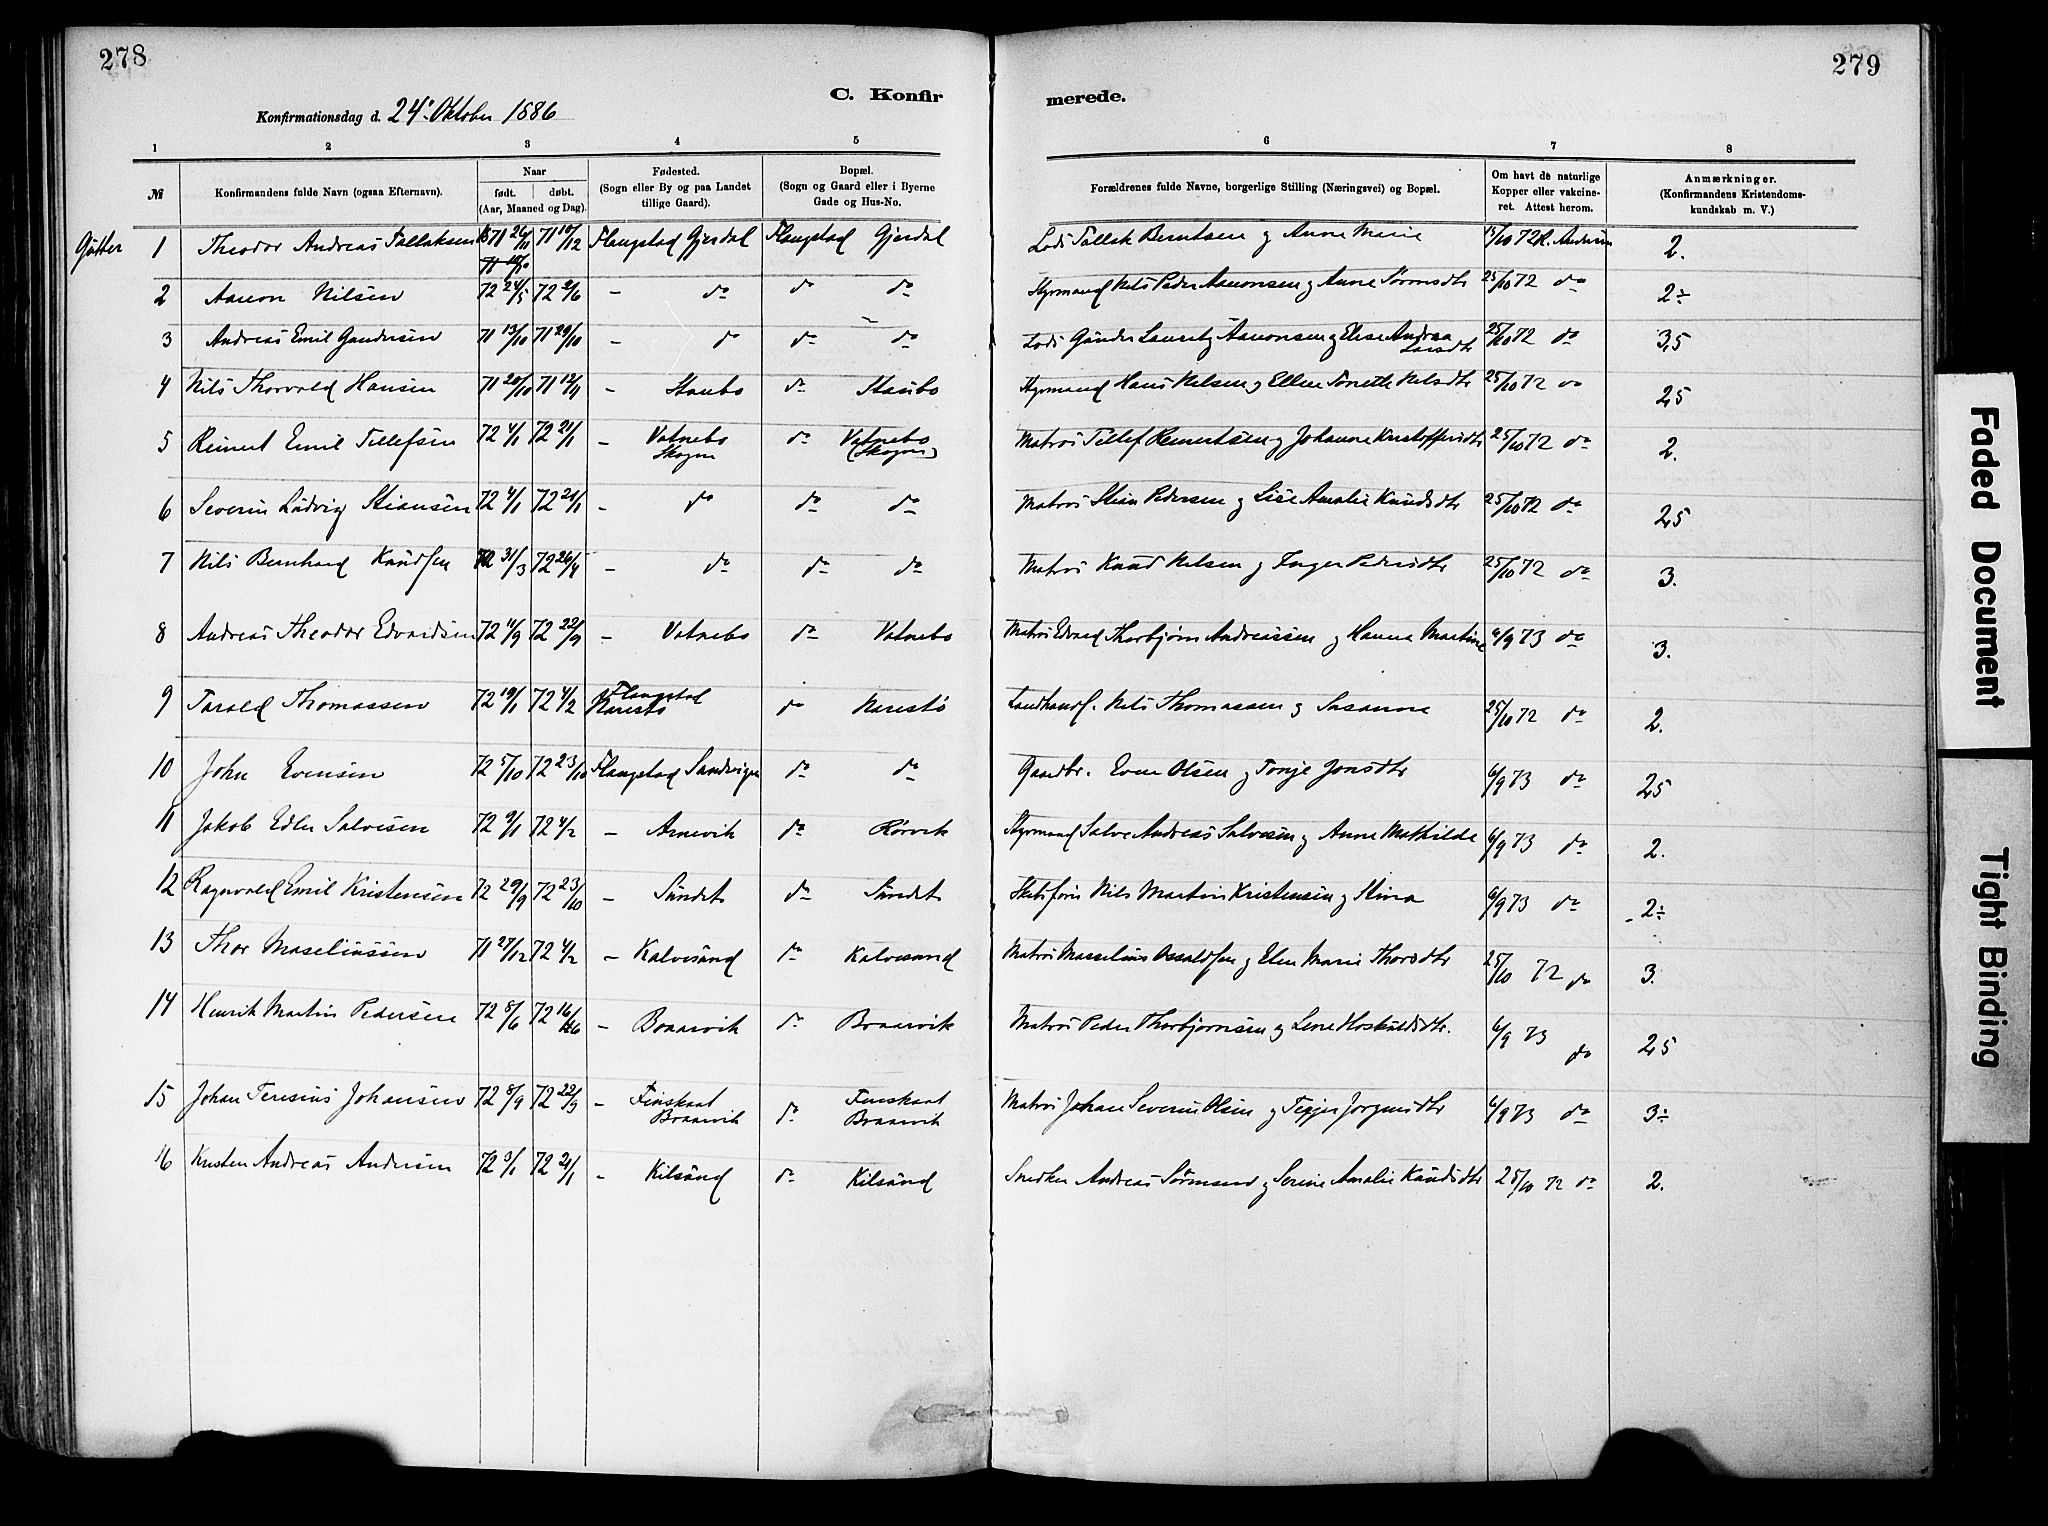 278
279
C. Konfirmerede.
Konfirmationsdag d. 24de Oktober 1886
1 2 3 4 5 6 7 8
№ Konfirmandens fulde Navn (ogsaa Efternavn). Naar født. døbt. (Aar, Maaned og Dag). Fødested. (Sogn eller By og paa Landet tillige Gaard). Bopæl. (Sogn og Gaard eller i Byerne Gade og Hus-No. Forældrenes fulde Navne, borgerlige Stilling (Næringsvei) og Bopæl. Om havt de naturlige Kopper eller vakcineret. Attest herom. Anmærkninger. (Konfirmandens Kristendomskundskab m. V.)
Gutter 1 Theodor Andreas Tallaksen 71 26/11 71 10/12 Flangstad Gjerdal Flangstad Gjerdal Lods Tallak Berntsen og Anne Marie 15/10 72 R. Andersen 2.
2 Aanon Nilsen 72 24/5 72 2/6 - do do do Styrmand Nils Peder Aanonsen og Anne Sørensdtr 25/10 72 do 2÷
3 Andreas Emil Gundersen 71 13/10 71 29/10 - do do do Lods Gunder Lauritz Aanonsen og Elise Andrea Larsdtr 25/10 72 do 3,5
4 Nils Thorvald Hansen 71 20/10 71 12/11 - Staubo do Staubo Styrmand Hans Nilsen og Ellen Tonette Nilsdtr 25/10 72 do 2,5
5 Reinert Emil Tellefsen 72 4/1 72 21/1 - Vatnebo Skogen do Vatnebo (Skogen) Matros Tellef Reinertsen og Johanne Kristoffersdtr 25/10 72 do 2.
6 Severin Ludvig Stiansen 72 4/1 72 21/1 - do do do Matros Stian Pedersen og Lise Amalie Knudsdtr 25/10 72 do 2,5
7 Nils Bernhard Knudsen 72 31/3 72 26/4 - do do do Matros Knud Nilsen og Inger Pedersdtr 25/10 72 do 3.
8 Andreas Theodor Edvardsen 72 11/9 72 22/9 - Vatnebo do Vatnebo Matros Edvard Thorbjørn Andreassen og Hanna Martine 6/9 73 do 3.
9 Tarald Thomassen 72 19/1 72 4/2 Flangstad Narestø do Narestø Landhandl. Nils Thomassen og Susanne 25/10 72 do 2.
10 John Evensen 72 5/10 72 23/10 Flangstad Sandvigen do do Gaardbr. Even Olsen og Tonje Jonsdtr 6/9 73 do 2,5
11 Jakob Edler Salvesen 72 9/1 72 4/2 - Arnevik do Rørvik Styrmand Salve Andreas Salvesen og Anne Mathilde 6/9 73 do 2.
12 Ragnvald Emil Kristensen 72 29/9 72 23/10 - Sundet do Sundet Skibsfører Nils Martin Kristensen og Stina 6/9 73 do 2÷
13 Thor Maseliussen 71 27/12 72 4/2 - Kalvesund do Kalvesund Matros Masselius Osvaldsen og Elen Marie Thorsdtr 25/10 72 do 3.
14 Henrik Martin Pedersen 72 8/6 72 16/6 - Boaarvik do Boaarvik Matros Peder Thorbjørnsen og Lene Hoskuldsdtr. 6/9 73 do 2,5
15 Johan Teresius Johansen 72 8/9 72 22/9 - Finskaat Braarvik do Finskaat Braarvik Matros Johan Severin Olsen og Jørgensdtr 6/9 73 do 3÷
16 Kristen Andreas Andersen 72 3/1 72 21/1 - Kilsund do Kilsund Snedker Andreas Sørensen og Serine Amalie Knudsdtr 25/10 72 do 2.
Faded Document
Tight Binding